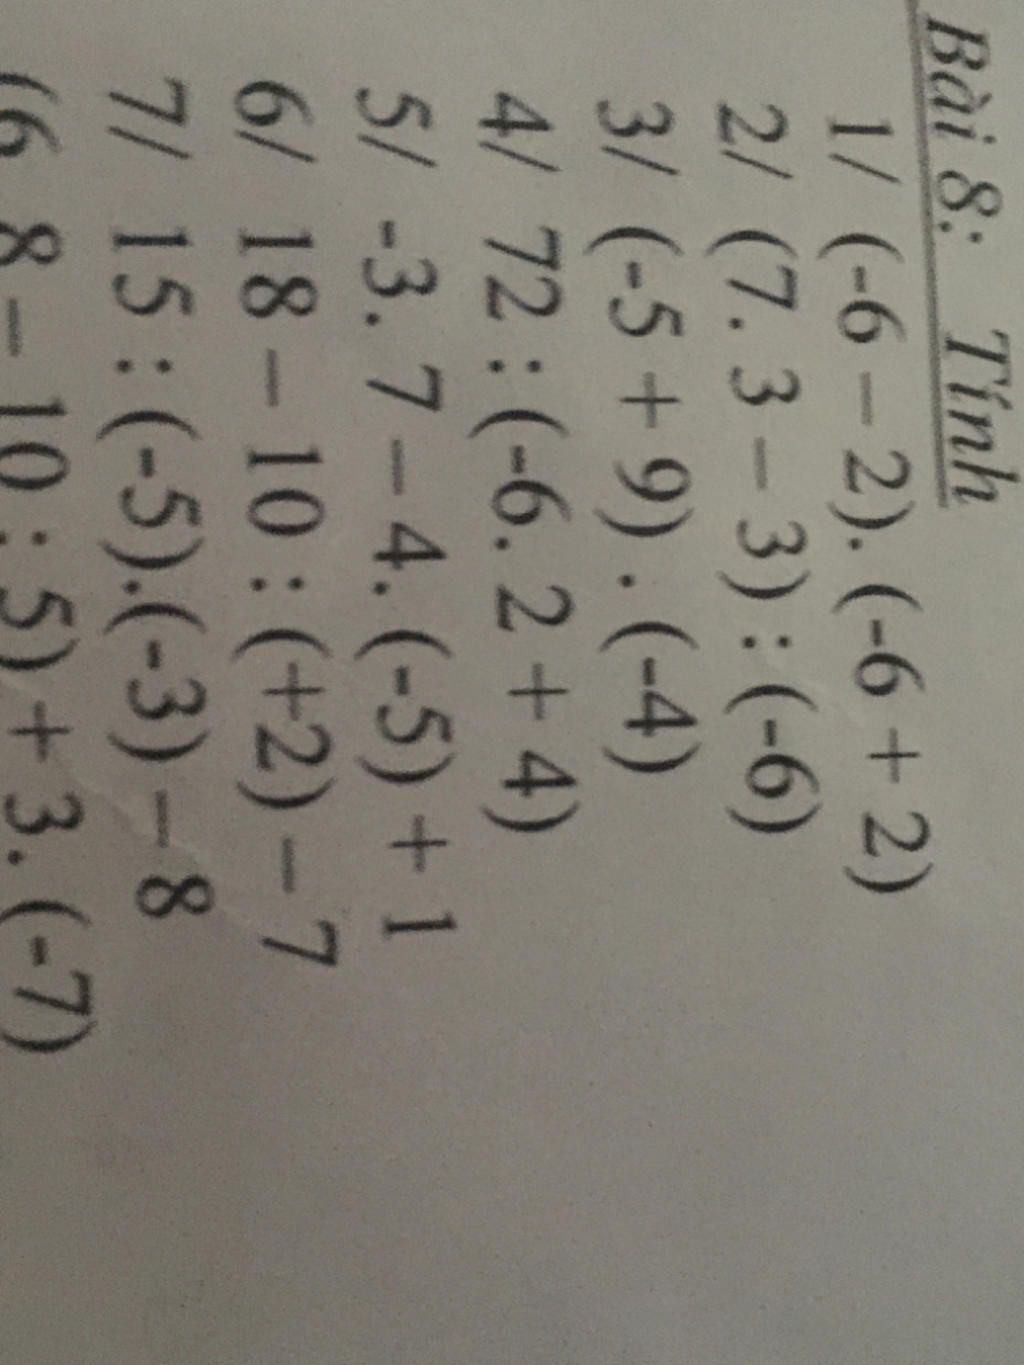 Bài 8: Tính
1/ (-6 – 2). (-6 + 2)
2/ (7. 3 – 3) : (-6)
3/ (-5 + 9) . (-4)
4/ 72 : (-6. 2 + 4)
5/ -3. 7 – 4. (-5) + 1
6/ 18 – 10 : (+2) – 7
7/ 15 : (-5).(-3) – 8
(6 8 – 10 : 5) + 3. (-7)